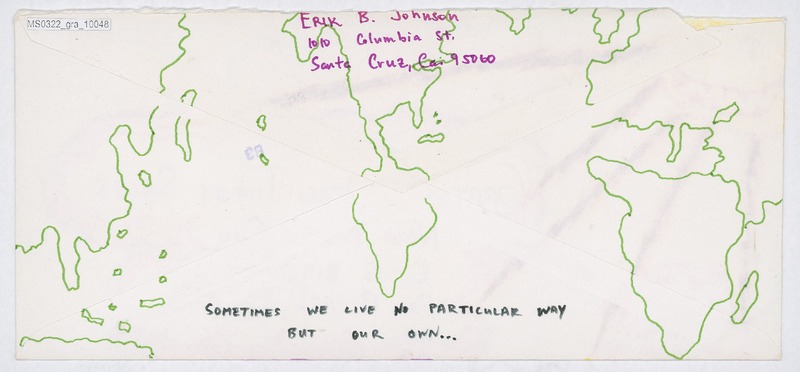 MS0322_gra_10048
ERIK B. Johnson
1010 Columbia St.
Santa Cruz, Ca. 95060
B3
SOMETIMES WE LIVE NO PARTICULAR WAY
BUT OUR OWN...